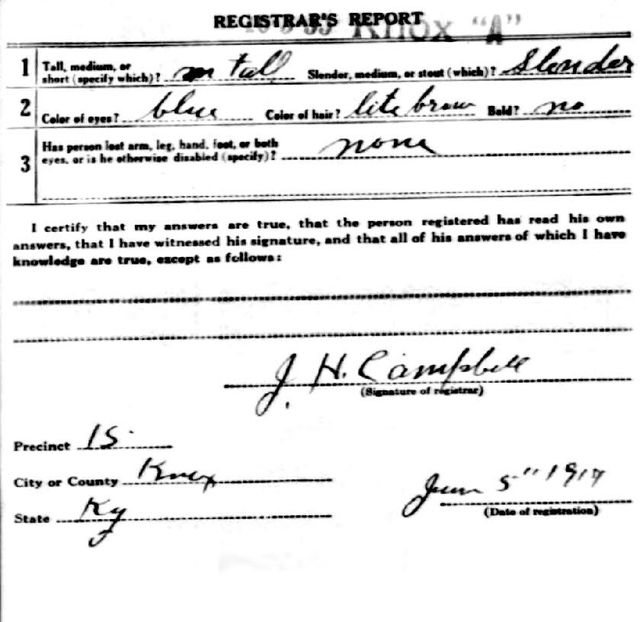 REGISTRAR'S REPORT
Knox "A"
1 Tall, medium, or short (specify which)? m tall Slender, medium, or stout (which)? Slender
2 Color of eyes? blue Color of hair? lite brown Bald? no
3 Has person lost arm, leg, hand, foot, or both
eyes, or is he otherwise disabled (specify)? none
I certify that my answers are true, that the person registered has read his own
answers, that I have witnessed his signature, and that all of his answers of which I have
knowledge are true, except as follows:
J. H. Campbell
(Signature of registrar)
Precinct 15
City or County Knox
State Ky
June 5" 1917
(Date of registration)